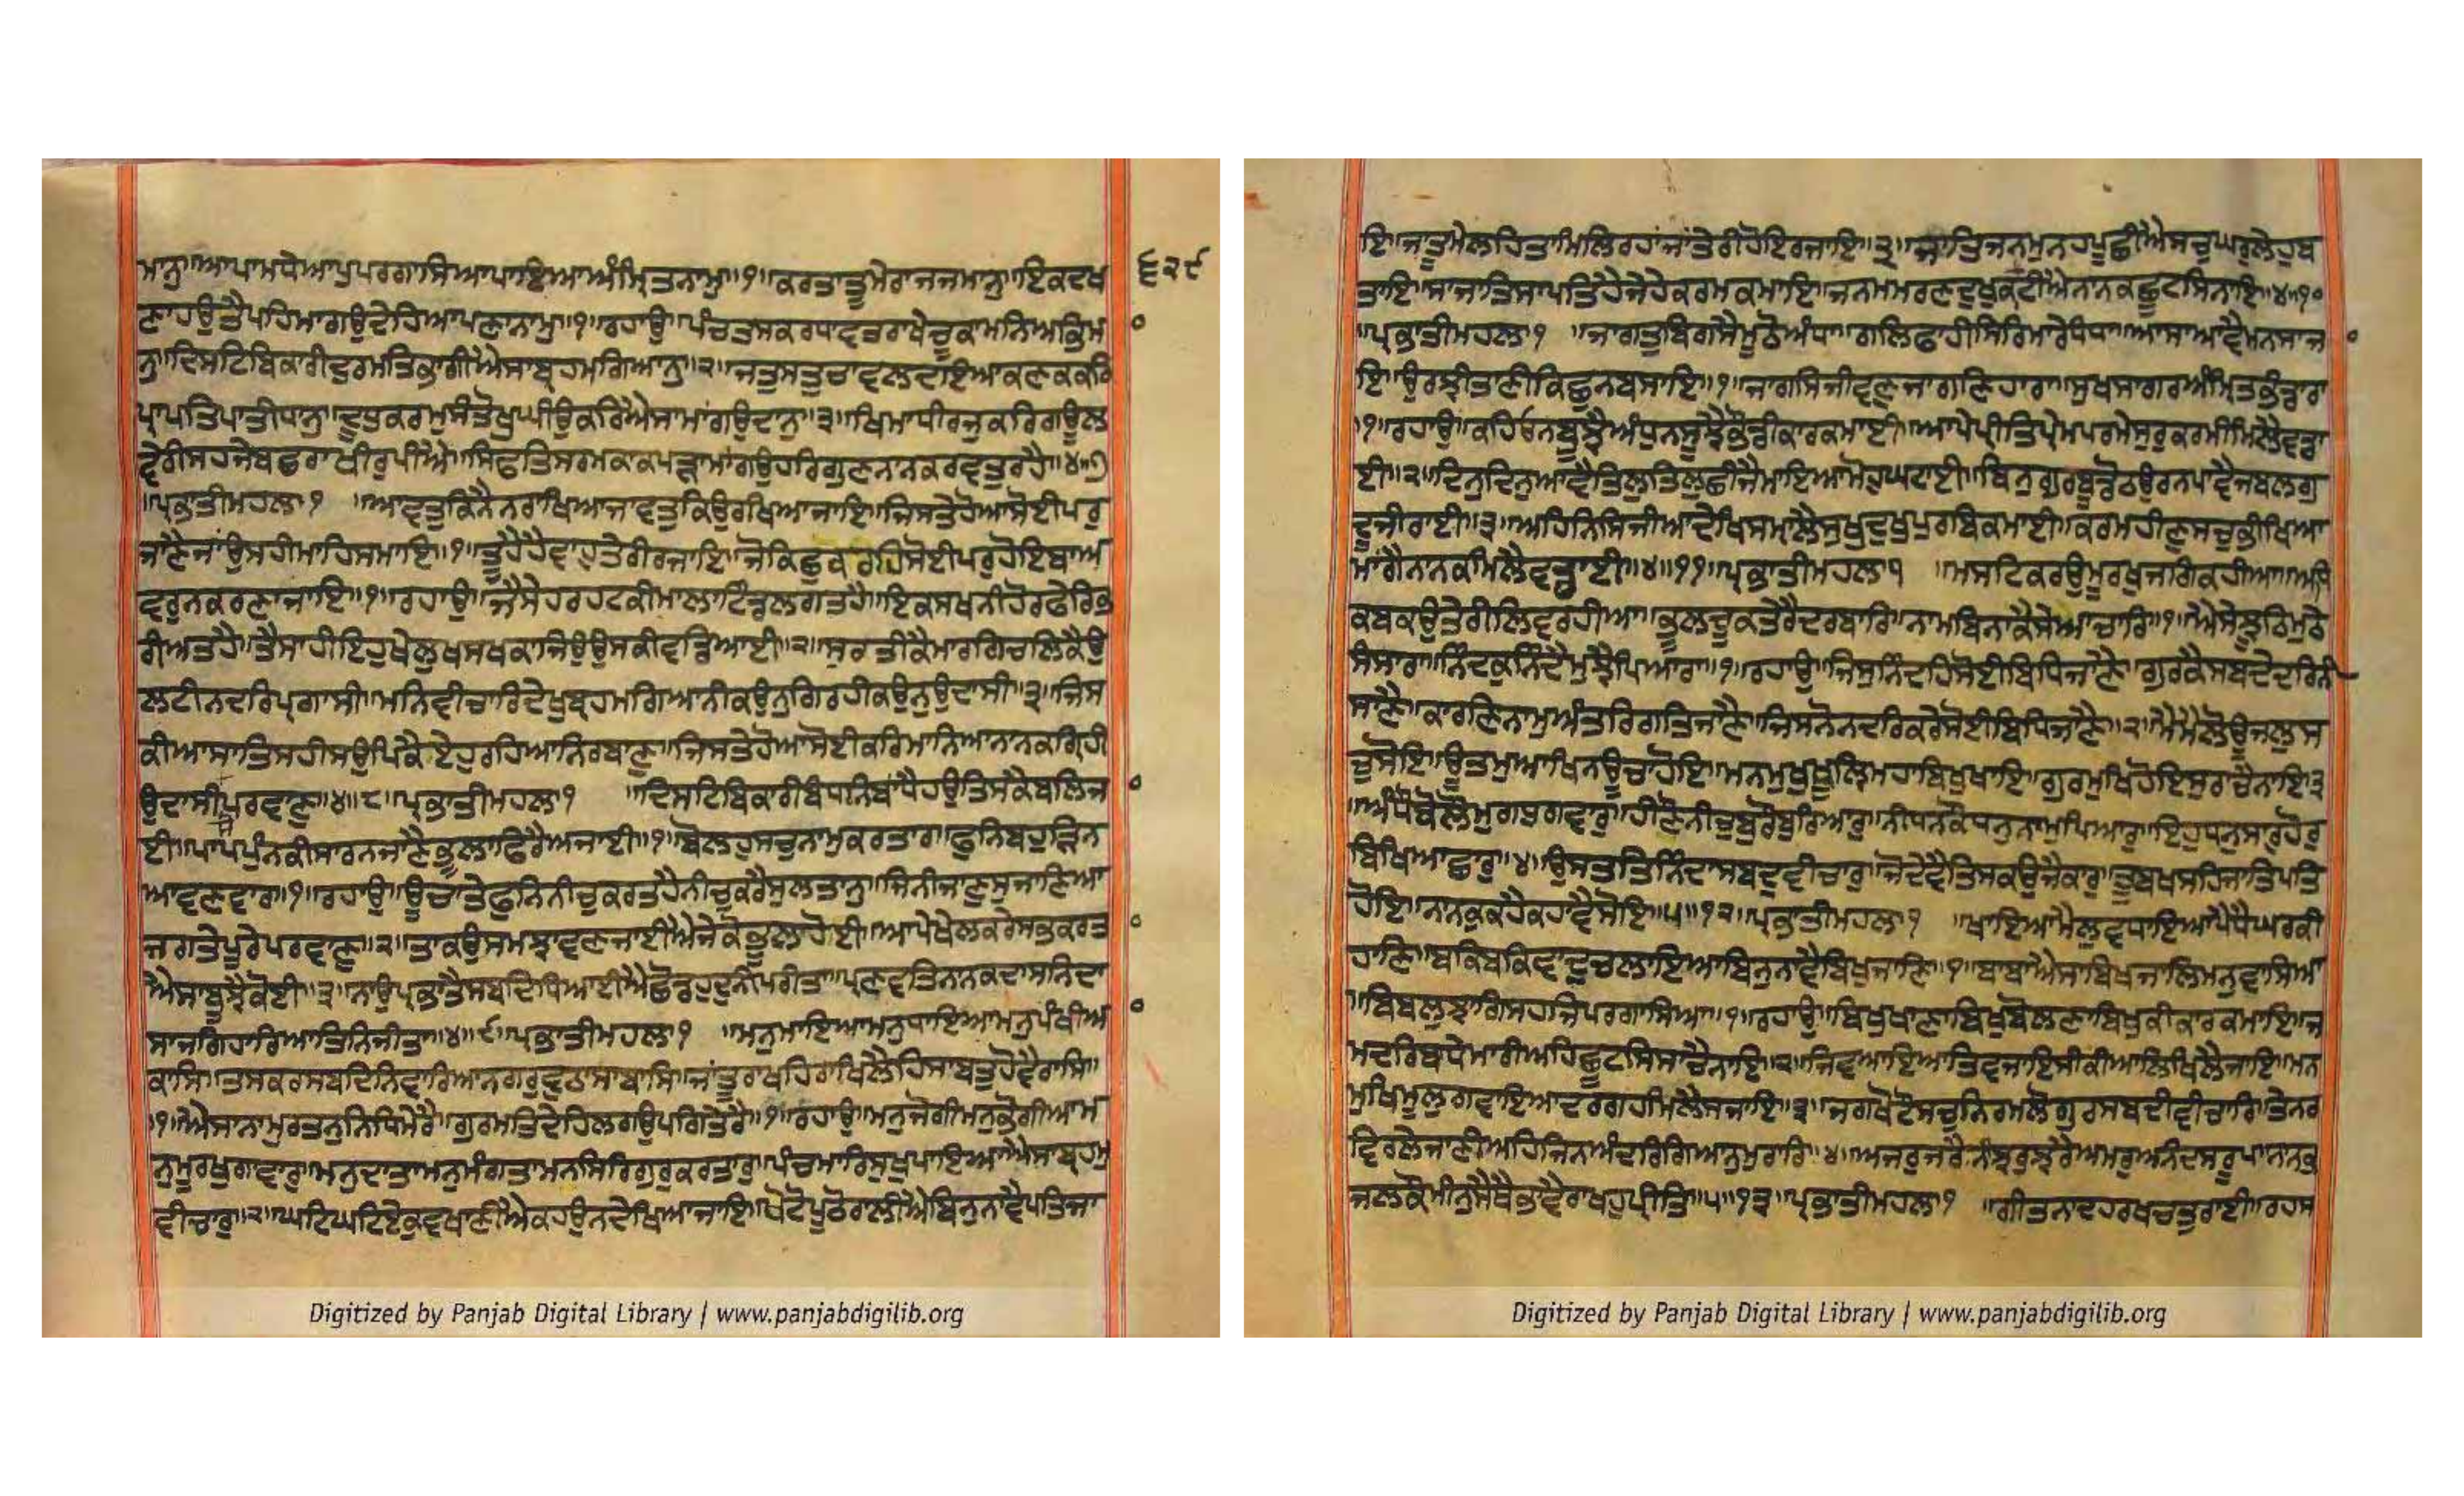 ਮਾਨੁ॥ਆਪਾਮਧੇਆਪੁਪਰਗਾਸਿਆਪਾਇਆਅੰਮ੍ਰਿਤਨਾਮੁ॥੧॥ਕਰਤਾਤੂਮੇਰਾਜਜਮਾਨੁ॥ਇਕਦਖ
੬੨੯
ਣਾਹਉਤੈਪਹਿਮਾਗਉਦੇਹਿਆਪਣਾਨਾਮੁ॥੧॥ਰਹਾਉ॥ਪੰਚਤਸਕਰਧਾਵਤਰਾਖੇਚੂਕਾਮਨਿਅਭਿਮਾ
ਨੁ॥ਦਿਸਟਿਬਿਕਾਰੀਦੁਰਮਤਿਭਾਗੀਐਸਾਬ੍ਰਹਮਗਿਆਨੁ॥੨॥ਜਤੁਸਤੁਚਾਵਲਦਇਆਕਣਕਕਰਿ
ਪ੍ਰਾਪਤਿਪਾਤੀਧਾਨੁ॥ਦੂਧੁਕਰਮੁਸੰਤੋਖੁਘੀਉਕਰਿਐਸਾਮਾਂਗਉਦਾਨੁ॥੩॥ਖਿਮਾਧੀਰਜੁਕਰਿਗਊਲ
ਵੇਰੀਸਹਜੇਬਛਰਾਖੀਰੁਪੀਐ॥ਸਿਫਤਿਸਰਮਕਾਕਪੜਾਮਾਂਗਉਹਰਿਗੁਣਨਾਨਕਰਵਤੁਰਹੈ॥੪॥੭
॥ਪ੍ਰਭਾਤੀਮਹਲਾ੧ ॥ਆਵਤੁਕਿਨੈਨਰਾਖਿਆਜਾਵਤੁਕਿਉਰਾਖਿਆਜਾਇ॥ਜਿਸਤੇਹੋਆਸੋਈਪਰੁ
ਜਾਣੈਜਾਂਉਸਹੀਮਾਹਿਸਮਾਇ॥੧॥ਤੂਹੈਹੈਵਾਹੁਤੇਰੀਰਜਾਇ॥ਜੋਕਿਛੁਕਰਹਿਸੋਈਪਰੁਹੋਇਬਾਅ
ਵਰੁਨਕਰਣਾਜਾਇ॥੧॥ਰਹਾਉ॥ਜੈਸੇਹਰਹਟਕੀਮਾਲਾਟਿੰਡਲਗਤਹੈ॥ਇਕਸਖਨੀਹੋਰਫੇਰਿਭ
ਰੀਅਤਹੈ॥ਤੈਸਾਹੀਇਹੁਖੇਲੁਖਸਮਕਾਜਿਉਉਸਕੀਵਡਿਆਈ॥੨॥ਸੁਰਤੀਕੈਮਾਰਗਿਚਲਿਕੈਉ
ਲਟੀਨਦਰਿਪ੍ਰਗਾਸੀ॥ਮਨਿਵੀਚਾਰਿਦੇਖੁਬ੍ਰਹਮਗਿਆਨੀਕਉਨੁਗਿਰਹੀਕਉਨੁਉਦਾਸੀ॥੩॥ਜਿਸ
ਕੀਆਸਾਤਿਸਹੀਸਉਪਿਕੈਏਹੁਰਹਿਆਨਿਰਬਾਣੁ॥ਜਿਸਤੇਹੋਆਸੋਈਕਰਿਮਾਨਿਆਨਾਨਕਗਿਰਹੀ
ਉਦਾਸੀਸੋਪਰਵਾਣੁ॥੪॥੮॥ਪ੍ਰਭਾਤੀਮਹਲਾ੧ ॥ਦਿਸਟਿਬਿਕਾਰੀਬੰਧਨਿਬਾਂਧੈਹਉਤਿਸਕੈਬਲਿਜਾ
ਈ॥ਪਾਪਪੁੰਨਕੀਸਾਰਨਜਾਣੈਭੂਲਾਫਿਰੈਅਜਾਈ॥੧॥ਬੋਲਹੁਸਚੁਨਾਮੁਕਰਤਾਰਾ॥ਫੁਨਿਬਹੁੜਿਨ
ਆਵਣਵਾਰਾ॥੧॥ਰਹਾਉ॥ਊਚਾਤੇਫੁਨਿਨੀਚੁਕਰਤੁਹੈਨੀਚੁਕਰੈਸੁਲਤਾਨੁ॥ਜਿਨੀਜਾਣੁਸੁਜਾਣਿਆ
ਜਗਤੇਪੂਰੇਪਰਵਾਣੁ॥੨॥ਤਾਕਉਸਮਝਾਵਣਜਾਈਐਜੇਕੋਭੂਲਾਹੋਈ॥ਆਪੇਖੇਲਕਰੇਸਭਕਰਤਾ
ਐਸਾਬੂਝੈਕੋਈ॥੩॥ਨਾਉਪ੍ਰਭਾਤੈਸਬਦਿਧਿਆਈਐਛੋਡਹੁਦੁਨੀਪਰੀਤਾ॥ਪ੍ਰਣਵਤਿਨਾਨਕਦਾਸਨਿਦਾ
ਸਾਜਗਿਹਾਰਿਆਤਿਨਿਜੀਤਾ॥੪॥੯॥ਪ੍ਰਭਾਤੀਮਹਲਾ੧ ॥ਮਨੁਮਾਇਆਮਨੁਧਾਇਆਮਨੁਪੰਖੀਆ
ਕਾਸਿ॥ਤਸਕਰਸਬਦਿਨਿਵਾਰਿਆਨਗਰੁਵੁਠਾਸਾਬਾਸਿ॥ਜਾਂਤੂਰਾਖਹਿਰਾਖਿਲੈਹਿਸਾਬਤੁਹੋਵੈਰਾਸਿ॥
॥੧॥ਐਸਾਨਾਮੁਰਤਨੁਨਿਧਿਮੇਰੈ॥ਗੁਰਮਤਿਦੇਹਿਲਗਉਪਗਿਤੇਰੈ॥੧॥ਰਹਾਉ॥ਮਨੁਜੋਗੀਮਨੁਭੋਗੀਆਮ
ਨੁਮੂਰਖੁਗਾਵਾਰੁ॥ਮਨੁਦਾਤਾਮਨੁਮੰਗਤਾਮਨਸਿਰਿਗੁਰੁਕਰਤਾਰੁ॥ਪੰਚਮਾਰਿਸੁਖੁਪਾਇਆਐਸਾਬ੍ਰਹਮੁ
ਵੀਚਾਰੁ॥੨॥ਘਟਿਘਟਿਏਕੁਵਖਾਣੀਐਕਹਉਨਦੇਖਿਆਜਾਇ॥ਖੋਟੋਪੂਠੋਰਾਲੀਐਬਿਨੁਨਾਵੈਪਤਿਜਾ
Digitized by Panjab Digital Library | www.panjabdigilib.org
ਇ॥ਜਾਤੂਮੇਲਹਿਤਾਮਿਲਿਰਹਾਂਜਾਂਤੇਰੀਹੋਇਰਜਾਇ॥੩॥ਜਾਤਿਜਨਮੁਨਹਪੂਛੀਐਸਚੁਘਰੁਲੇਹੁਬ
ਤਾਇ॥ਸਾਜਾਤਿਸਾਪਤਿਹੈਜੇਹੇਕਰਮਕਮਾਇ॥ਜਨਮਮਰਣਦੁਖੁਕਟੀਐਨਾਨਕਛੂਟਸਿਨਾਇ॥੪॥੧੦
॥ਪ੍ਰਭਾਤੀਮਹਲਾ੧ ॥ਜਾਗਤੁਬਿਗਸੈਮੂਠੋਅੰਧਾ॥ਗਲਿਫਾਹੀਸਿਰਿਮਾਰੇਧੰਧਾ॥ਆਸਾਆਵੈਮਨਸਾਜਾ
ਇ॥ਉਰਝੀਤਾਣੀਕਿਛੁਨਬਸਾਇ॥੧॥ਜਾਗਸਿਜੀਵਣਜਾਗਣਿਹਾਰਾ॥ਸੁਖਸਾਗਰਅੰਮ੍ਰਿਤਭੰਡਾਰਾ
॥੧॥ਰਹਾਉ॥ਕਹਿਓਨਬੂਝੈਅੰਧੁਨਸੂਝੈਭੋਂਡੀਕਾਰਕਮਾਈ॥ਆਪੇਪ੍ਰੀਤਿਪ੍ਰੇਮਪਰਮੇਸੁਰੁਕਰਮੀਮਿਲੈਵਡਾ
ਈ॥੨॥ਦਿਨੁਦਿਨੁਆਵੈਤਿਲੁਤਿਲੁਛੀਜੈਮਾਇਆਮੋਹੁਘਟਾਈ॥ਬਿਨੁਗੁਰਬੂਡੋਠਉਰਨਪਾਵੈਜਬਲਗ
ਦੂਜੀਰਾਈ॥੩॥ਅਹਿਨਿਸਿਜੀਆਦੇਖਿਸਮ੍ਹਾਲੈਸੁਖੁਦੁਖੁਪੁਰਬਿਕਮਾਈ॥ਕਰਮਹੀਣੁਸਚੁਭੀਖਿਆ
ਮਾਂਗੈਨਾਨਕਮਿਲੈਵਡਾਈ॥੪॥੧੧॥ਪ੍ਰਭਾਤੀਮਹਲਾ੧ ॥ਮਸਟਿਕਰਉਮੂਰਖੁਜਗਿਕਹੀਆ॥ਅਧਿ
ਕਬਕਉਤੇਰੀਲਿਵਰਹੀਆ॥ਭੂਲਚੂਕਤੇਰੈਦਰਬਾਰਿ॥ਨਾਮਬਿਨਾਕੈਸੇਆਚਾਰਿ॥੧॥ਐਸੇਝੂਠਿਮੁਠੇ
ਸੰਸਾਰਾ॥ਨਿੰਦਕੁਨਿੰਦੈਮੁਝੈਪਿਆਰਾ॥੧॥ਰਹਾਉ॥ਜਿਸੁਨਿੰਦਹਿਸੋਈਬਿਧਿਜਾਣੈ॥ਗੁਰਕੈਸਬਦੇਦਰਿਨੀ
ਸਾਣੈ॥ਕਾਰਣਿਨਾਮੁਅੰਤਰਿਗਤਿਜਾਣੈ॥ਜਿਸਨੋਨਦਰਿਕਰੇਸੋਈਬਿਧਿਜਾਣੈ॥੨॥ਮੈਮੈਲੋਊਜਲੁਸ
ਚੁਸੋਇ॥ਊਤਮੁਆਖਿਨਊਚਾਹੋਇ॥ਮਨਮੁਖੁਖੂਲਿਮਹਾਬਿਖੁਖਾਇ॥ਗੁਰਮੁਖਿਹੋਇਸੁਰਾਚੈਨਾਇ॥੩
॥ਅੰਧੌਬੋਲੌਮੁਗਧੁਗਵਾਰੁ॥ਹੀਣੌਨੀਚੁਬੁਰੌਬੁਰਿਆਰੁ॥ਨੀਧਨਕੌਧਨੁਨਾਮੁਪਿਆਰੁ॥ਇਹੁਧਨੁਸਾਰੁਹੋਰੁ
ਬਿਖਿਆਛਾਰੁ॥੪॥ਉਸਤਤਿਨਿੰਦਾਸਬਦੁਵੀਚਾਰੁ॥ਜੋਦੇਵੈਤਿਸਕਉਜੈਕਾਰੁ॥ਤੂਬਖਸਹਿਜਾਤਿਪਤਿ
ਹੋਇ॥ਨਾਨਕੁਕਹੈਕਹਾਵੈਸੋਇ॥੫॥੧੨॥ਪ੍ਰਭਾਤੀਮਹਲਾ੧ ॥ਖਾਇਆਮੈਲੁਵਧਾਇਆਪੈਧੈਘਰਕੀ
ਹਾਣਿ॥ਬਕਿਬਕਿਵਾਦੁਚਲਾਇਆਬਿਨੁਨਾਵੈਬਿਖੁਜਾਣਿ॥੧॥ਬਾਬਾਐਸਾਬਿਖਮਜਾਲਿਮਨੁਵਾਸਿਆ
॥ਬਿਬਲੁਝਾਗਿਸਹਜਿਪਰਗਾਸਿਆ॥੧॥ਰਹਾਉ॥ਬਿਖੁਖਾਣਾਬਿਖੁਬੋਲਣਾਬਿਖੁਕੀਕਾਰਕਮਾਇ॥ਜ
ਮਦਰਿਬਾਧੇਮਾਰੀਅਹਿਛੂਟਸਿਸਾਚੈਨਾਇ॥੨॥ਜਿਵਆਇਆਤਿਵਜਾਇਸੀਕੀਆਲਿਖਿਲੈਜਾਇ॥ਮਨ
ਮੁਖਿਮੂਲੁਗਵਾਇਆਦਰਗਹਮਿਲੈਸਜਾਇ॥੩॥ਜਗਖੋਟੌਸਚੁਨਿਰਮਲੌਗੁਰਸਬਦੀਵੀਚਾਰਿ॥ਤੇਨਰ
ਵਿਰਲੇਜਾਣੀਅਹਿਜਿਨਅੰਤਰਿਗਿਆਨੁਮੁਰਾਰਿ॥੪॥ਅਜਰੁਜਰੈਨੀਝਰੁਝਰੈਅਮਰਅਨੰਦਸਰੂਪ॥ਨਾਨਕੁ
ਜਲਕੌਮੀਨੁਸੈਥੈਭਾਵੈਰਾਖਹੁਪ੍ਰੀਤਿ॥੫॥੧੩॥ਪ੍ਰਭਾਤੀਮਹਲਾ੧ ॥ਗੀਤਨਾਦਹਰਖਚਤੁਰਾਈ॥ਰਹਸ
Digitized by Panjab Digital Library | www.panjabdigilib.org